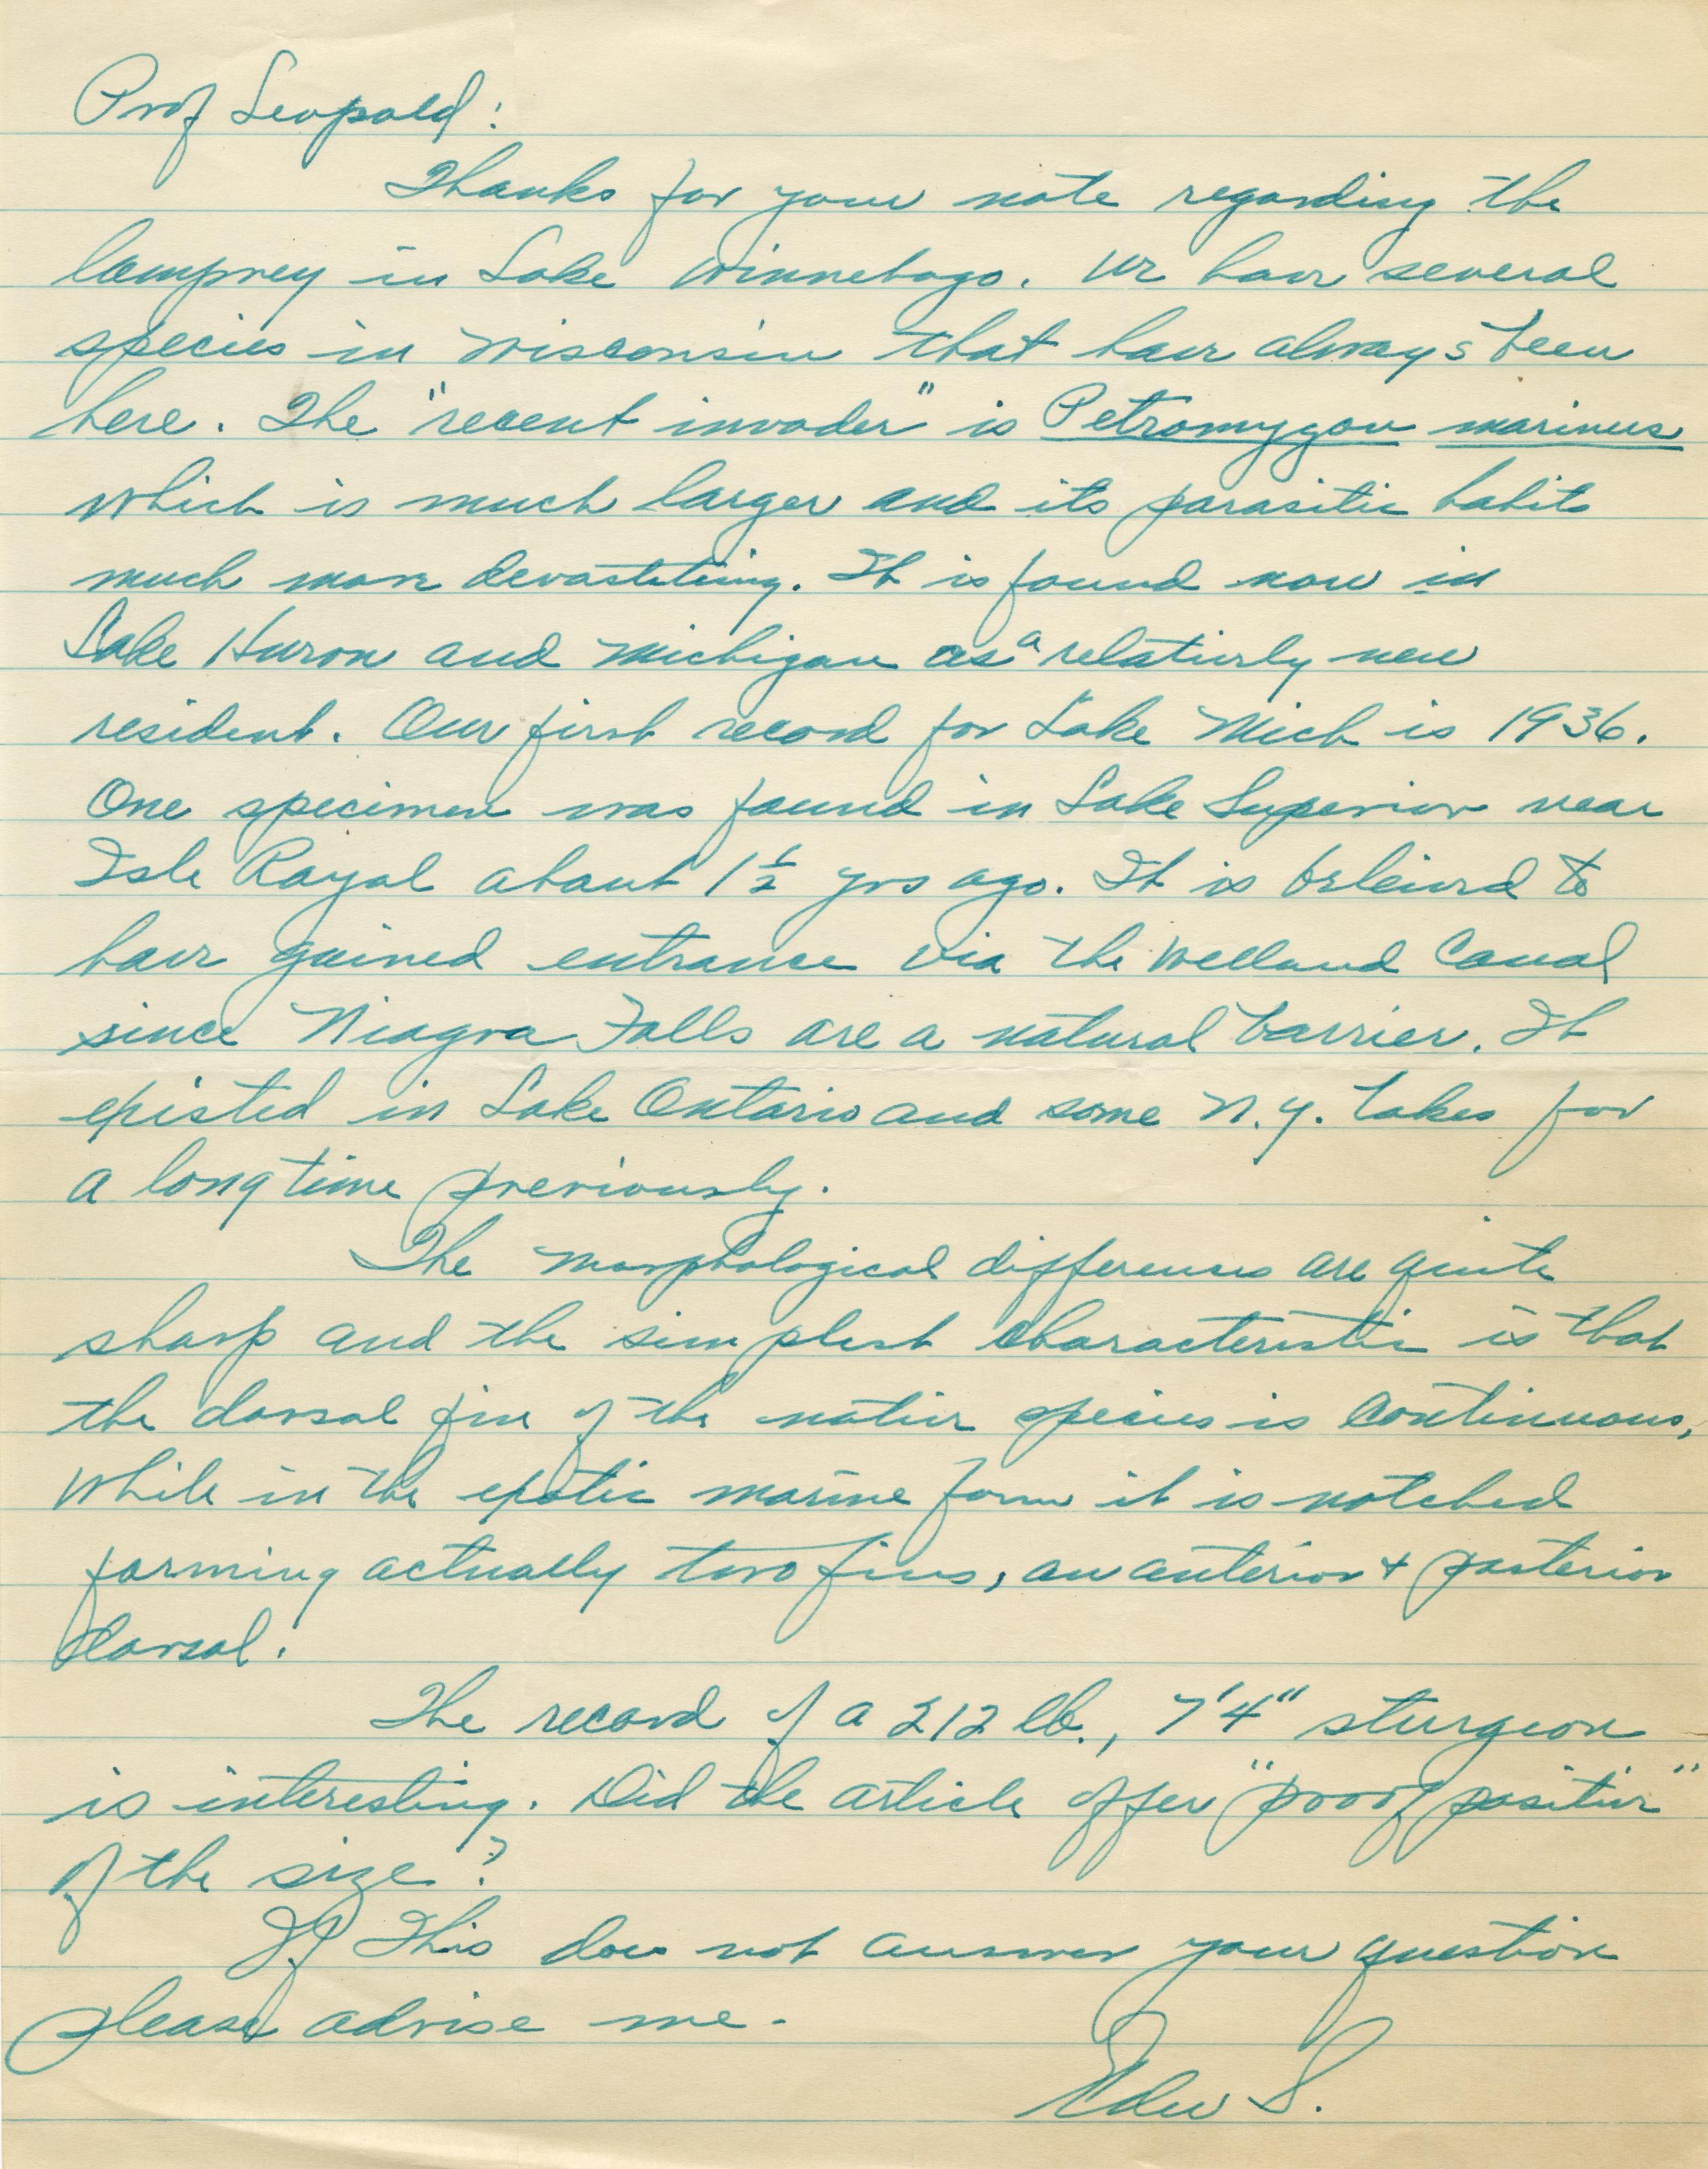 Prof Leopold:
Thanks for your note regarding the
lamprey in Lake Winnebago. We have several
species in Wisconsin that have always been
here. The "recent invader" is Petromyzon marinus
which is much larger and its parasitic habits
much more devastating. It is found now in
Lake Huron and Michigan as a relatively new
resident. Our first record for Lake Mich is 1936.
One specimen was found in Lake Superior near
Isle Royal about 1½ yrs ago. It is believed to
have gained entrance via the Welland Canal
since Niagra Falls are a natural barrier. It
existed in Lake Ontario and some N.Y. Lakes for
a long time previously.
The morphological differences are quite
sharp and the simplest characteristic is that
the dorsal fin of the native species is continuous,
while in the exotic marine form it is notched
forming actually two fins, an anterior + posterior
dorsal.
The record of a 212 lb., 7'4" sturgeon
is interesting. Did the article offer "proof positive"
of the size?
If this does not answer your question
please advise me.
Edw S.